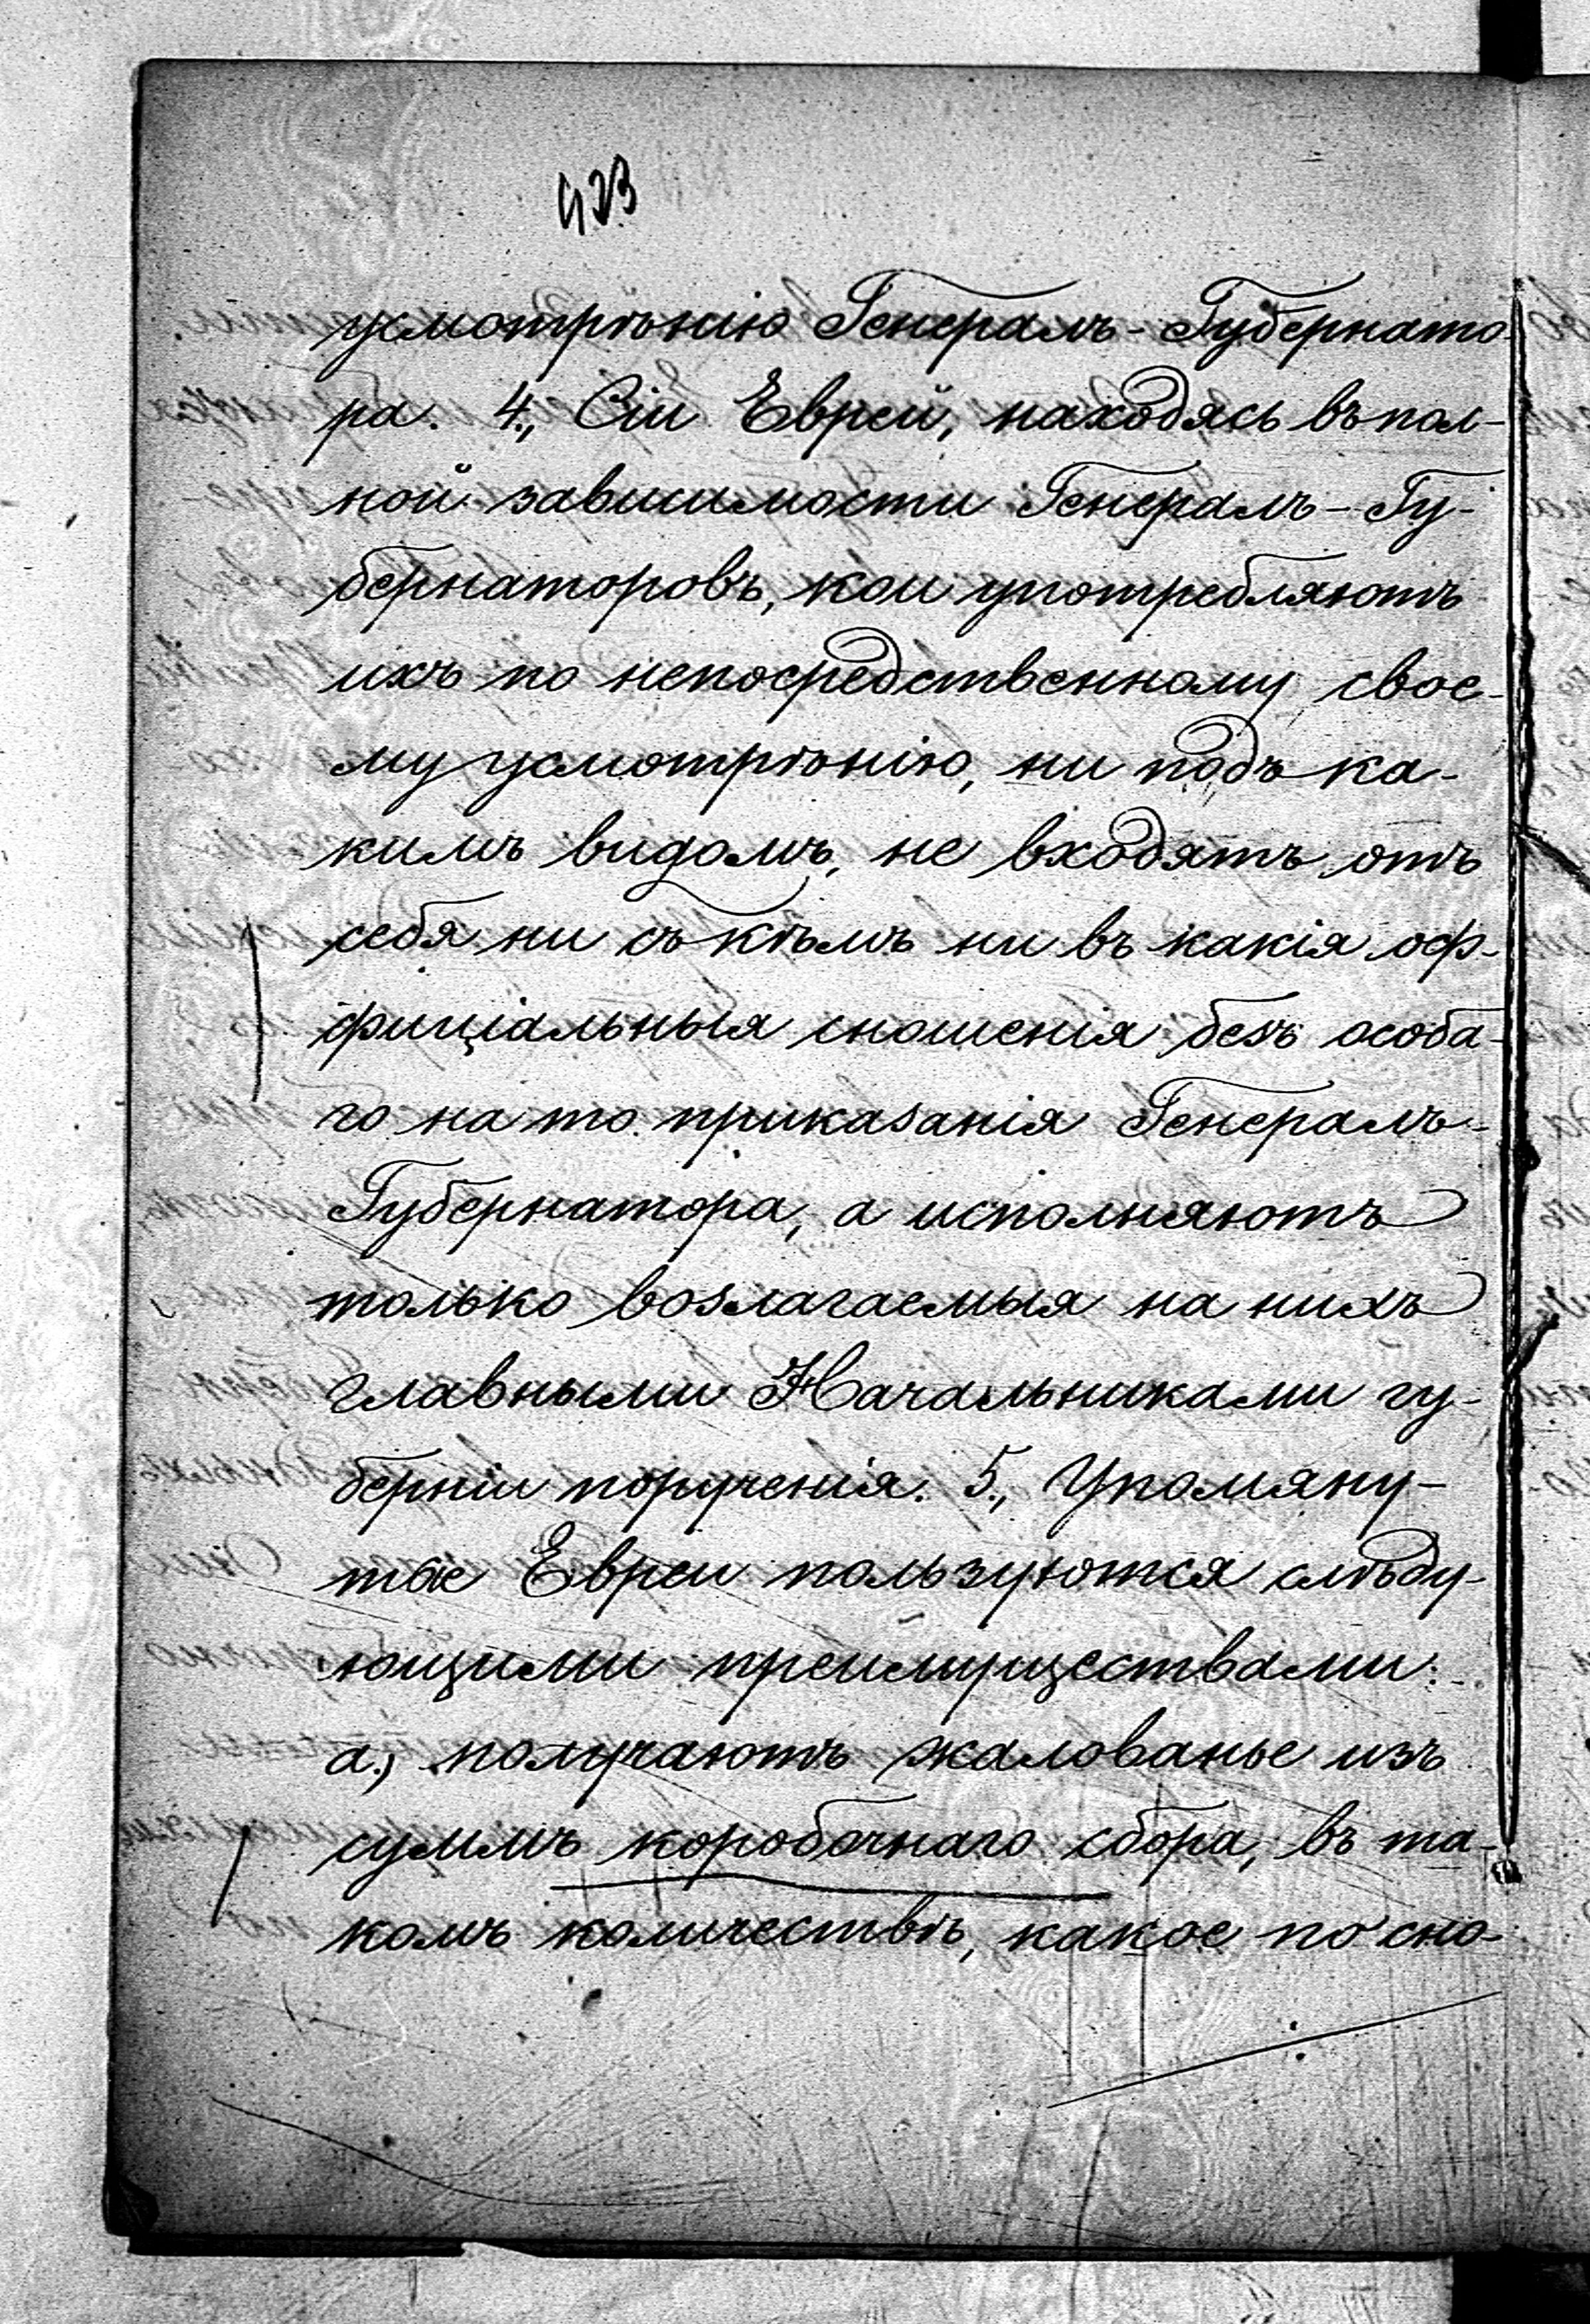 423
усмотрѣнію Генералъ-Губернато-
ра. 4., Сіи Евреи, находясь въ пол-
ной зависимости Генералъ-Гу-
бернаторовъ, кои употребляютъ
ихъ по непосредственному свое-
му усмотрѣнію, ни подъ ка-
кимъ видомъ, не входятъ отъ
себя ни съ кѣмъ ни въ какія оф-
фиціальныя сношенія безъ особа-
го на то приказанія Генералъ-
Губернатора, а исполняютъ
только возлагаемыя на нихъ
главными Начальниками гу-
берніи порученія. 5., Упомяну-
тые Евреи пользуются слѣду-
ющими преимуществами:
а.) получаютъ жалованье изъ
суммъ коробочнаго сбора, въ та-
комъ количествѣ, какое по сно-